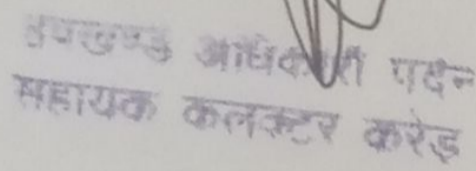 उपखण्ड अधिकारी पदेन
सहायक कलक्टर करेड़